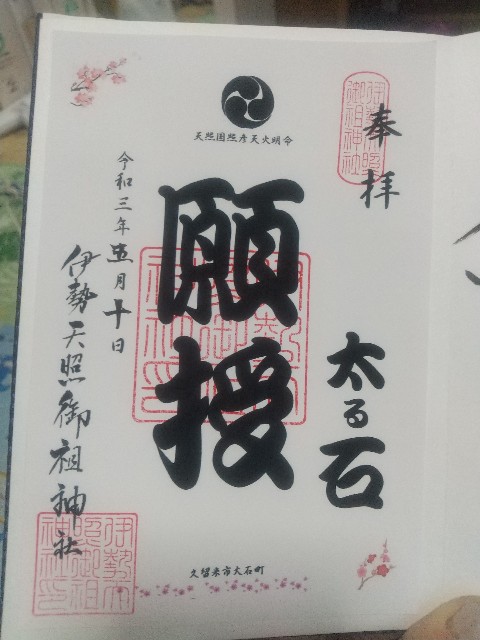 奉拝
伊勢天照御祖神社
太る石
天照国照彦天火明命
願授
令和三年五月十日
伊勢天照御祖神社
久留米市大石町
伊勢天照御祖神社印